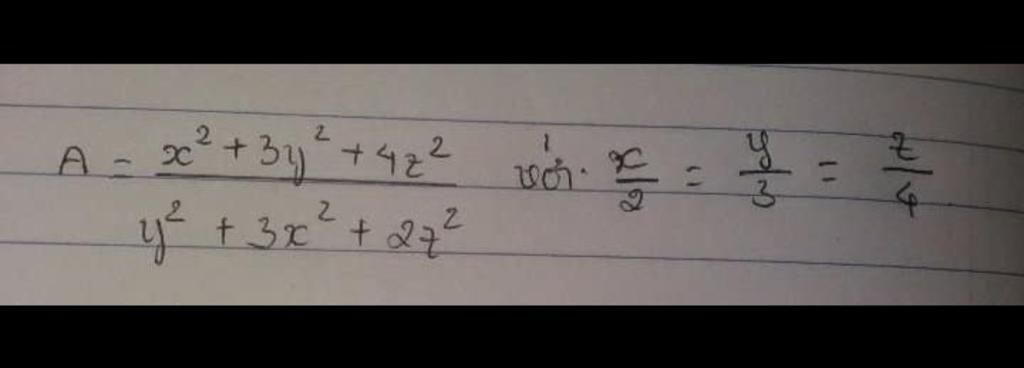 A = (x² + 3y² + 4z²) / (y² + 3x² + 2z²) với x/2 = y/3 = z/4